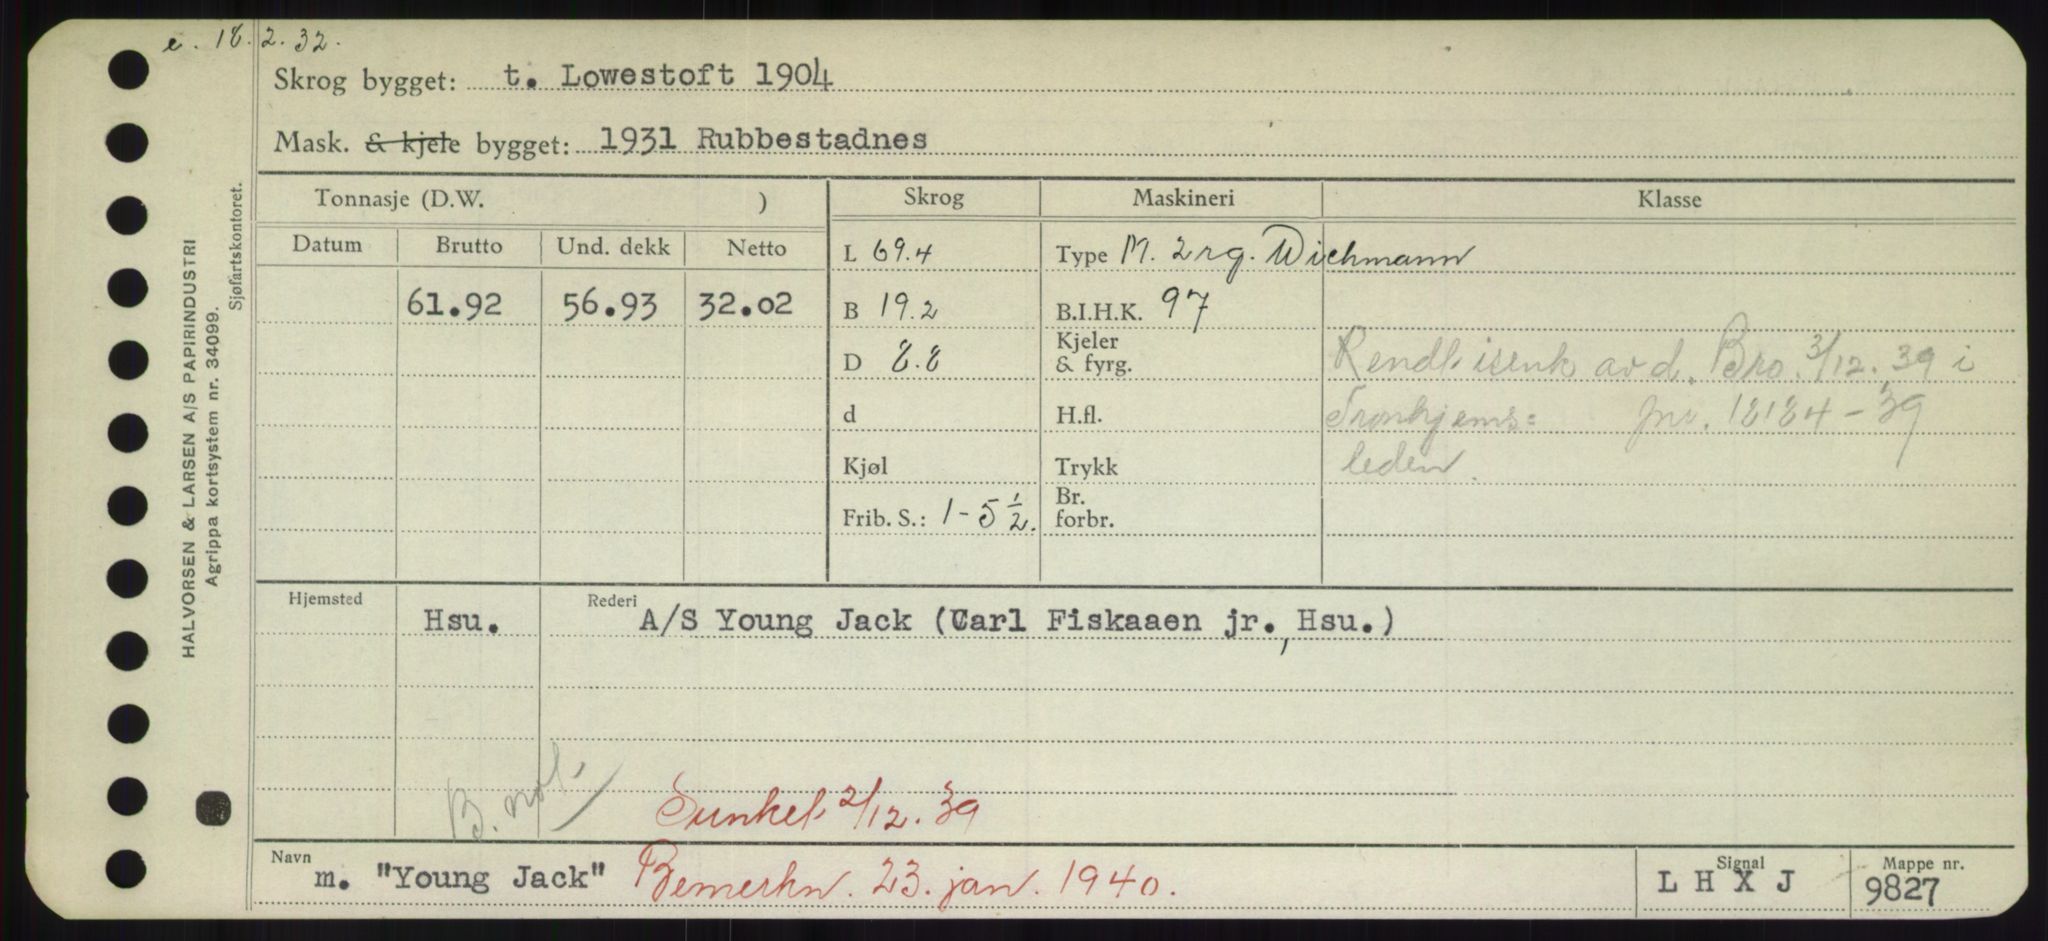 e. 18.2.32.
Skrog bygget: t. Lowestoft 1904
Mask. & kjele bygget: 1931 Rubbestadnes
Tonnasje (D.W. ) Skrog Maskineri Klasse
Datum Brutto Und. dekk Netto L 69.4 Type M. 2 rg. Wichmann
61.92 56.93 32.02 B 19.2 B.I.H.K. 97
D 8.8 Kjeler & fyrg. av d. Bro. 3/12.39 i
d H.fl. Tronhjems= jnr. 18184-39
Kjøl Trykk leden.
Frib. S.: 1-5 1/2. Br. forbr.
Hjemsted Hsu. Rederi A/S Young Jack (Carl Fiskaaen jr., Hsu.)
B. not.
Sunket 2/12.39
Navn m. "Young Jack" Bemerkn. 23. jan. 1940. Signal L H X J Mappe nr. 9827
HALVORSEN & LARSEN A/S PAPIRINDUSTRI
Agrippa kortsystem nr. 34099.
Sjøfartskontoret.